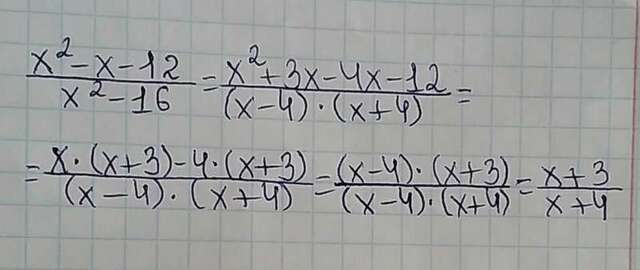 (x² - x - 12)/(x² - 16) = (x² + 3x - 4x - 12)/((x - 4) · (x + 4)) =
= (x · (x + 3) - 4 · (x + 3))/((x - 4) · (x + 4)) = ((x - 4) · (x + 3))/((x - 4) · (x + 4)) = (x + 3)/(x + 4)